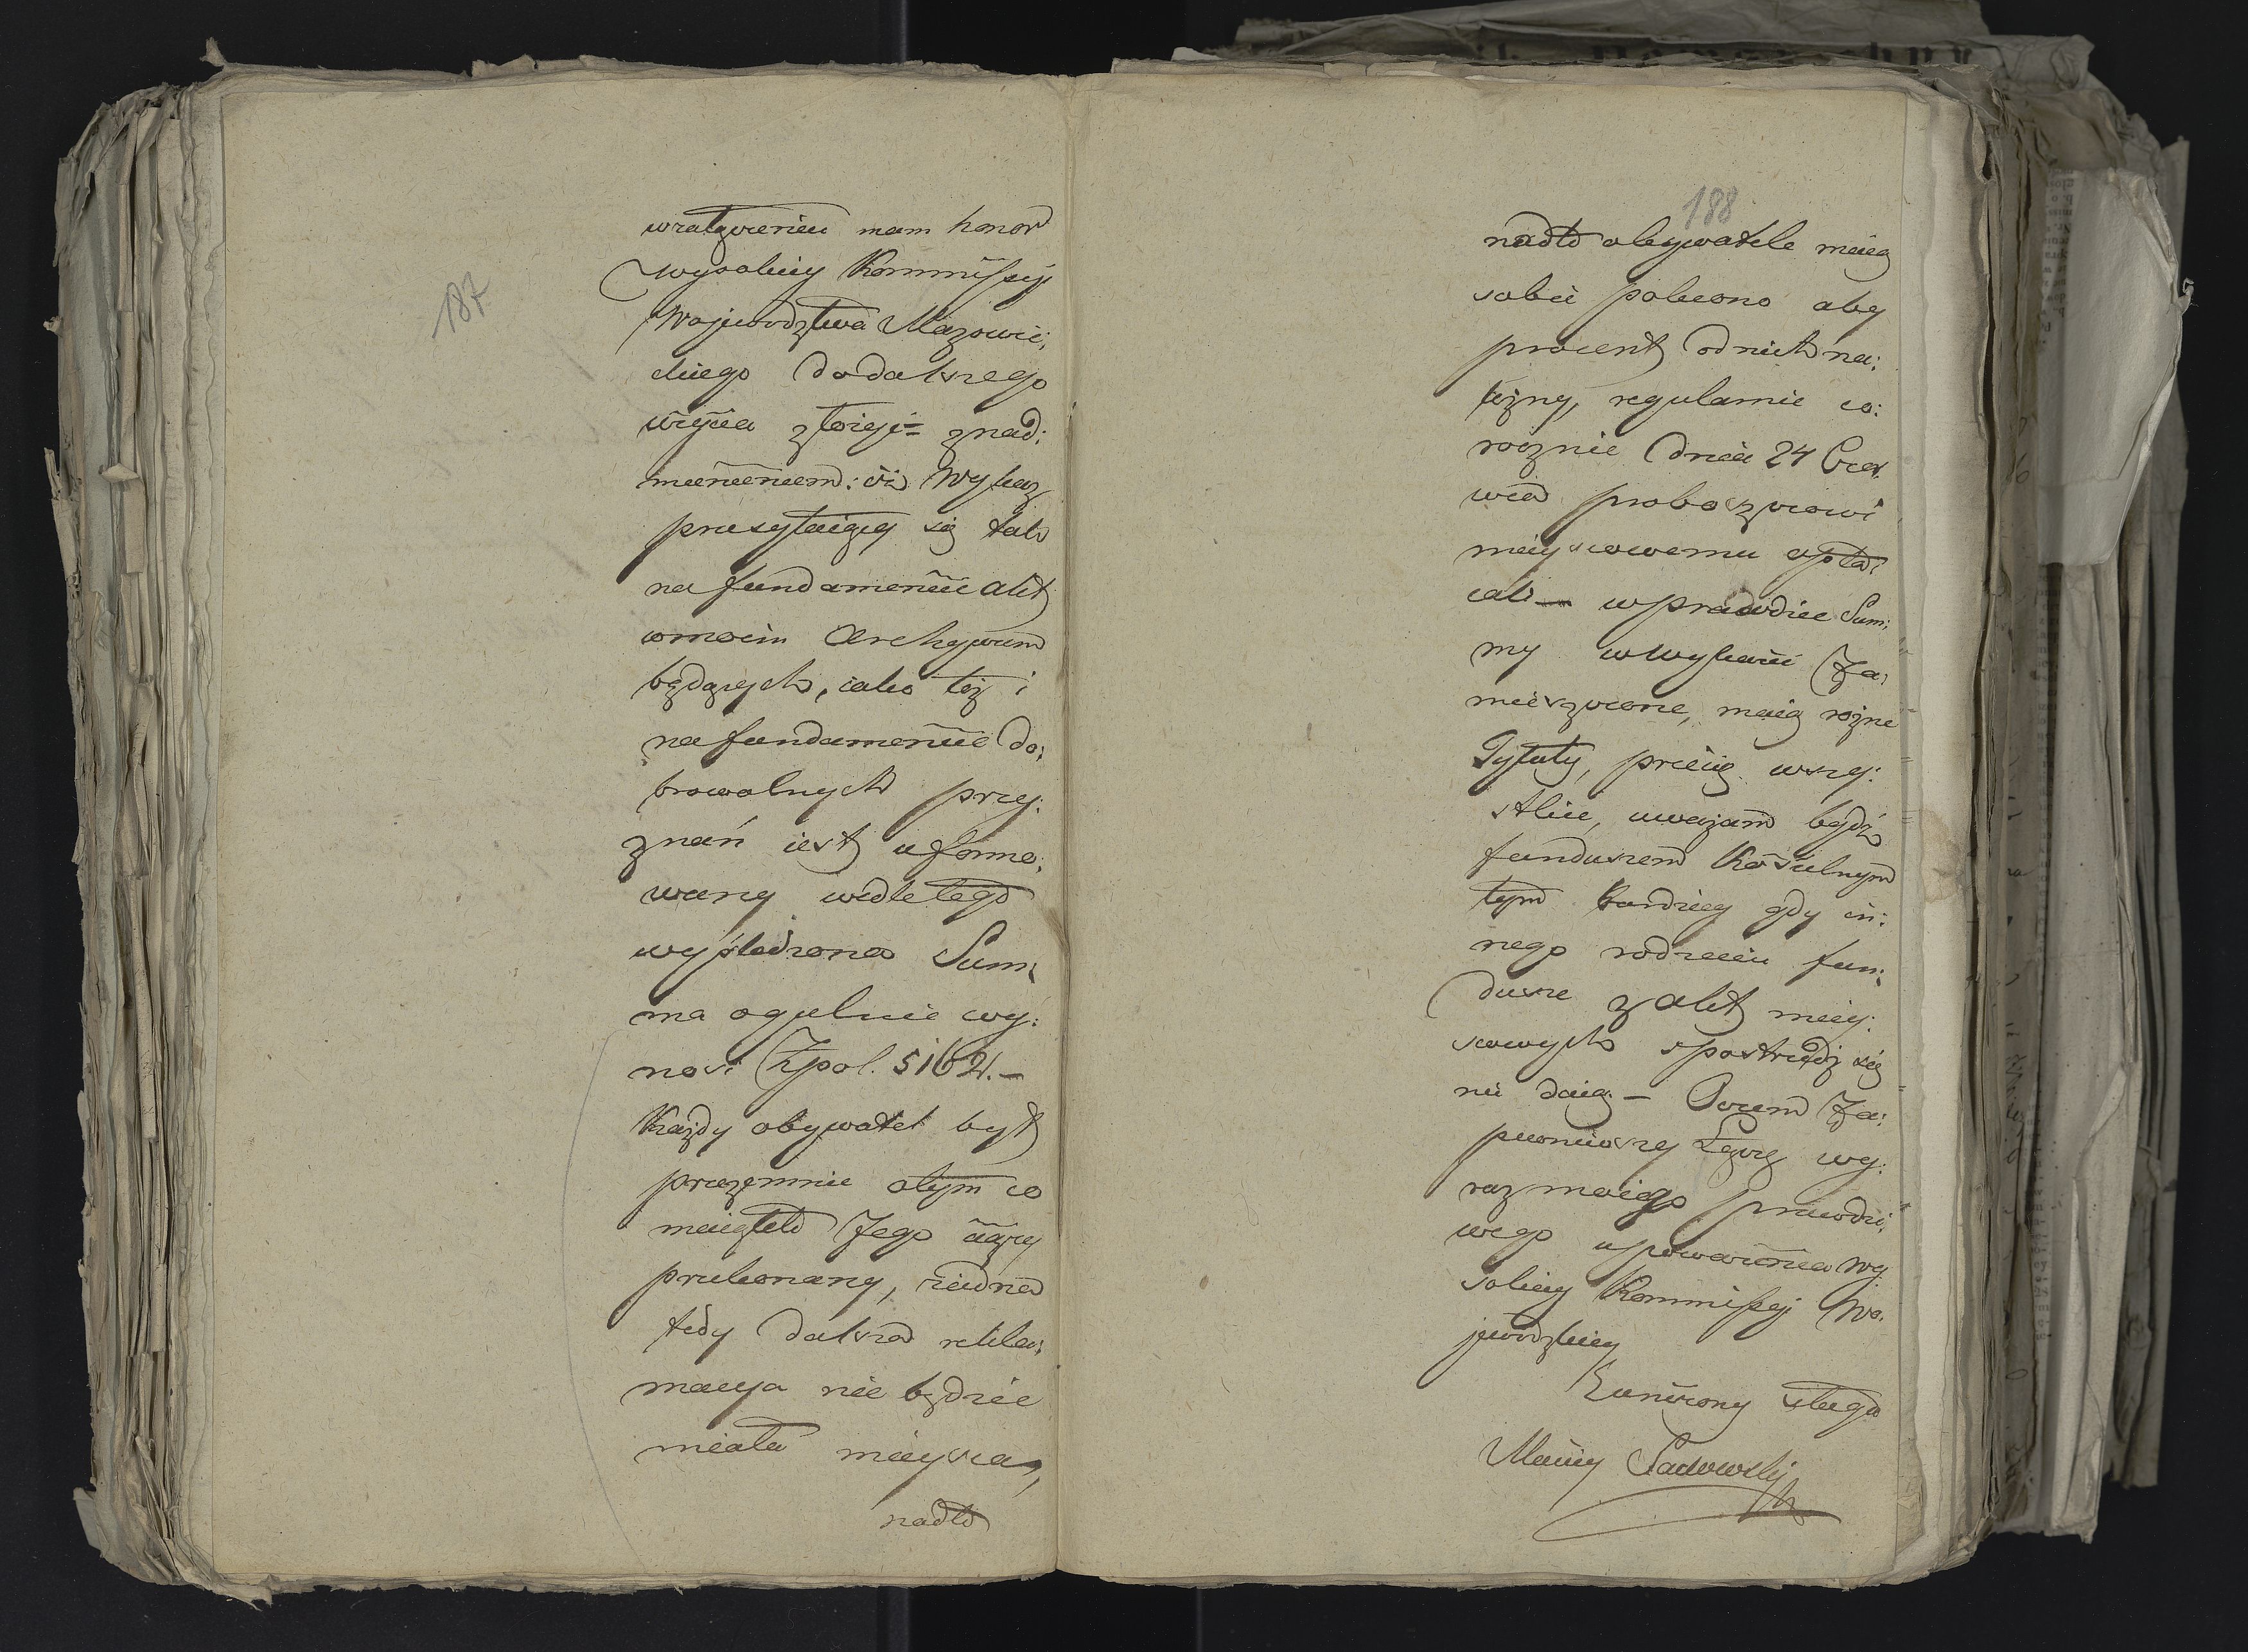 187
wzałączeniu mam honor
Wysokiey Kommissyi
Województwa Mazowie:
ckiego do dalszego
użycia złożyć z nad:
mienieniem: iż Wykaz
przesyłaiący się tak
na fundamencie akt
wmoim Archywum
będących, iako też i
na fundamencie do:
browolnych przy:
znań iest uformo:
wany wedle tego
wyśledzona Sum:
ma ogulnie wy:
nosi Złpol. 5162.—
Każdy obywatel był
przezemnie otym co
maiątek Jego ciąży
przekonany, żadna
tedy dalsza rekla:
macya nie będzie
miała mieysca,
nadto
188
nadto obywatele maią
sobie polecono aby
procent od nich na:
leżny, regularnie co:
rocznie dnia 24 Czer
wca proboszczowi
mieyscowemu opła:
cali — wprawdzie Sum:
my wwykazie Za:
mieszczone, maią rożne
Tytuły, przecię wszy:
stkie, uważam bydź
funduszem Kościelnym
tym bardziey gdy in:
nego rodzaiu fun:
dusze z akt miey:
scowych spostrzedz się
nie daią — Poczem Za:
pewniwszy Łączę wy:
raz moiego prawdzi:
wego upoważnienia Wy
sokiey Kommissyi Wo:
jewodzkiey
Uniżony sługa
Maciey Sadowski